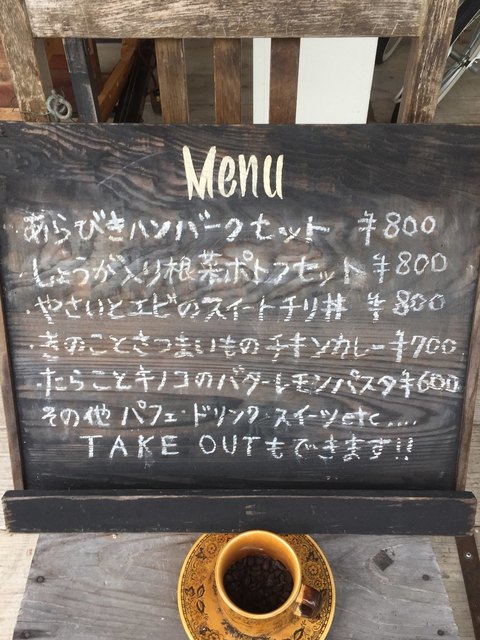 Menu
あらびきハンバークセット ¥800
・しょうが入り根菜ポトフセット ¥800
・やさいとエビのスイートチリ丼 ¥800
・きのことさつまいものチキンカレー ¥700
・たらことキノコのバターレモンパスタ ¥600
その他 パフェ・ドリンク スイーツetc....
TAKE OUTもできます!!